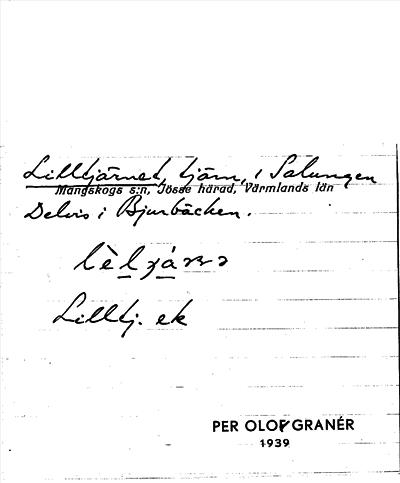 Lilltjärnet, tjärn, i Salungen
Mangskogs s:n, Jösse härad, Värmlands län
Delvis i Bjurbäcken.
Lilltj. ek
PER OLOF GRANÉR
1939